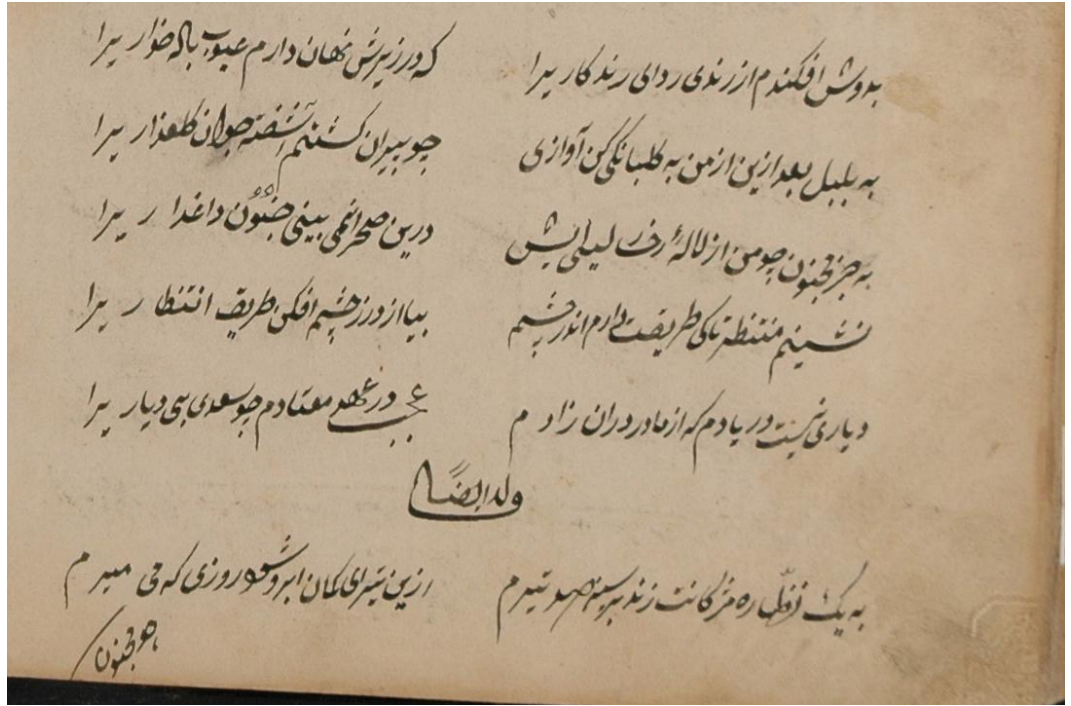 بدوش افکندم از رندی ردای رندکار یرا که در زیرش نهان دارم عیوب باله خوار یرا
به بلبل بعد ازین از من به کلبانکی کن آوازی چو پیران کشتم آشفته جوان کلعذار یرا
به جز مجنون چو من از لالهٔ رخ لیلی درین صحرا نمی بینی جنون داغدا ر یرا
نشینم منتظر تا کی طریقت دارم اندر چشم بیا از در ز چشم افکن طریق انتظا ر یرا
دیاری نیست در یادم که از مادر دران زاد م عجب در عهد معتادم چو سعدی بی دیار یرا
وله ایضاً
به یک نظّاره مژکانت زند بر سینه صد تیرم ازین تیر ای کمان ابرو شود روزی که می میرم
مجنون